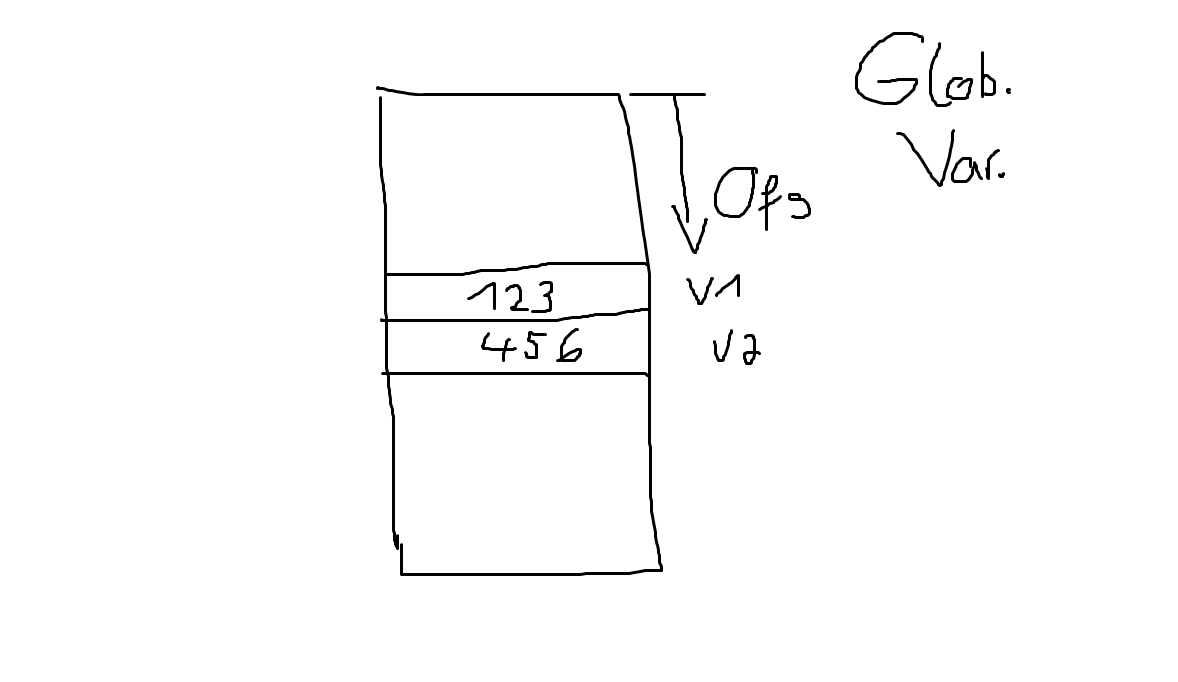 Glob.
Var.
Ofs
123 V1
456 V2